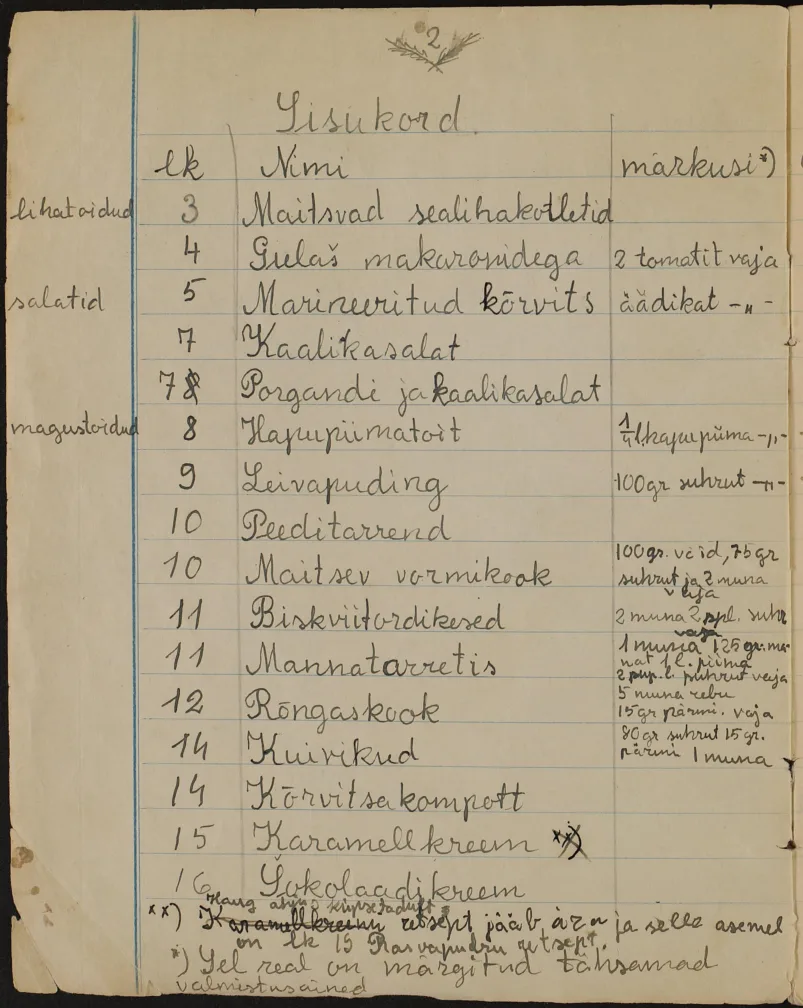 2
Sisukord.
lk Nimi märkusi *)
lihatoidud 3 Maitsvad sealihakotletid
4 Gulaš makaronidega 2 tomatit vaja
salatid 5 Marineeritud kõrvits äädikat -„-
7 Kaalikasalat
7 8 Porgandi ja kaalikasalat
magustoidud 8 Hapupiimatoit 1/4 l. hapupiima -„-
9 Leivapuding 100gr suhrut -„-
10 Peeditarrend
10 Maitsev vormikook 100gr. võid, 75gr
suhrut ja 2 muna
vaja
11 Biskviittordikesed 2 muna 2 spl. suhr
vaja
11 Mannatarretis 1 muna 125 gr. ma-
nat 1 l. piima
2 sup. l. suhrut vaja
12 Rõngaskook 5 muna rebu
15gr pärmi. vaja
14 Kuivikud 80gr suhrut 15 gr.
pärmi 1 muna
14 Kõrvitsakompott
15 Karamellkreem xx)
16 Šokolaadikreem
Haug ahjus küpsetadult
xx) Karamellkreemi retsept jääb ära ja selle asemel
on lk 15 Rasvapudru retsept.
*) Sel real on märgitud tähsamad
valmistusained